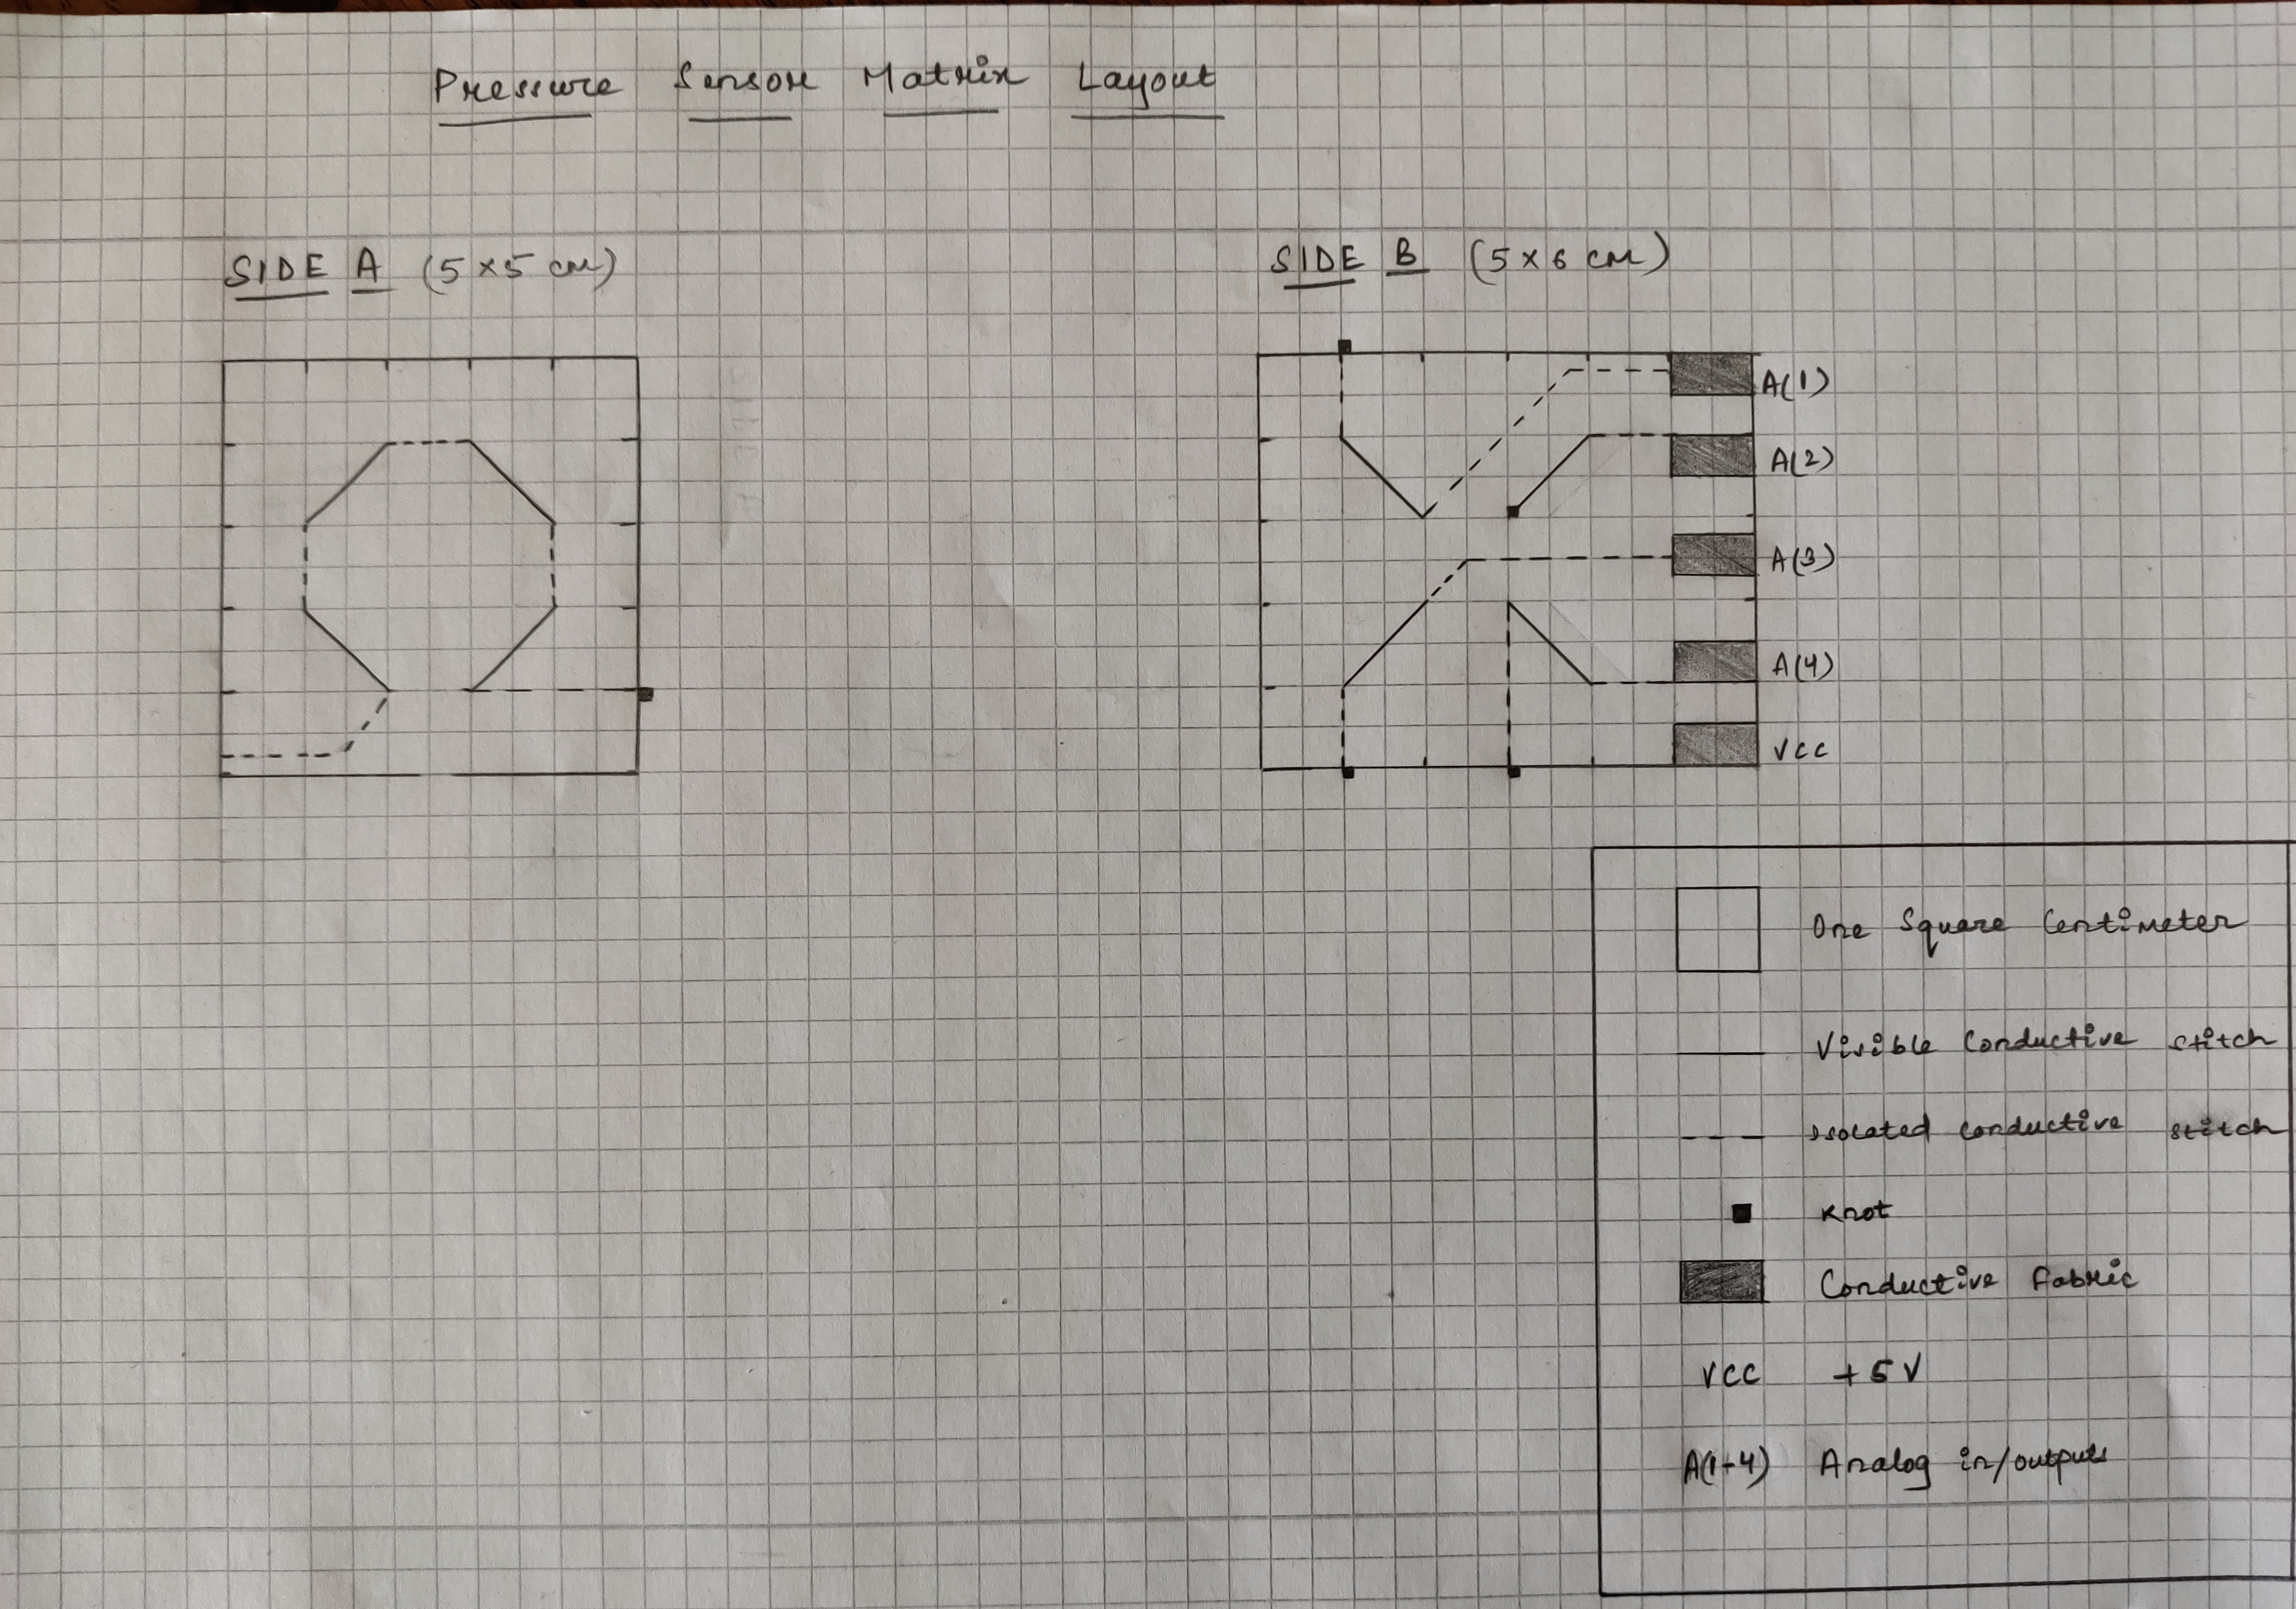 Pressure Sensor Matrix Layout
SIDE A (5x5 cm)
SIDE B (5x6 cm)
A(1)
A(2)
A(3)
A(4)
VCC
One Square Centimeter
Visible Conductive stitch
Isolated conductive stitch
Knot
Conductive Fabric
VCC +5V
A(1-4) Analog in/outputs